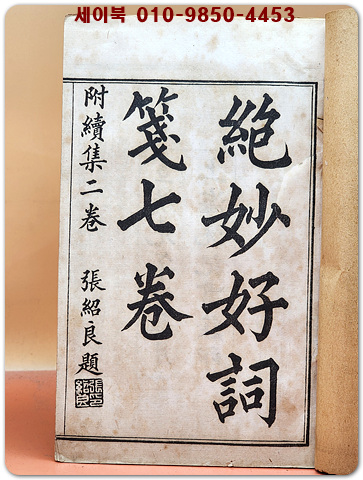 세이북 010-9850-4453
絶妙好詞
箋七卷
附續集二卷 張紹良題